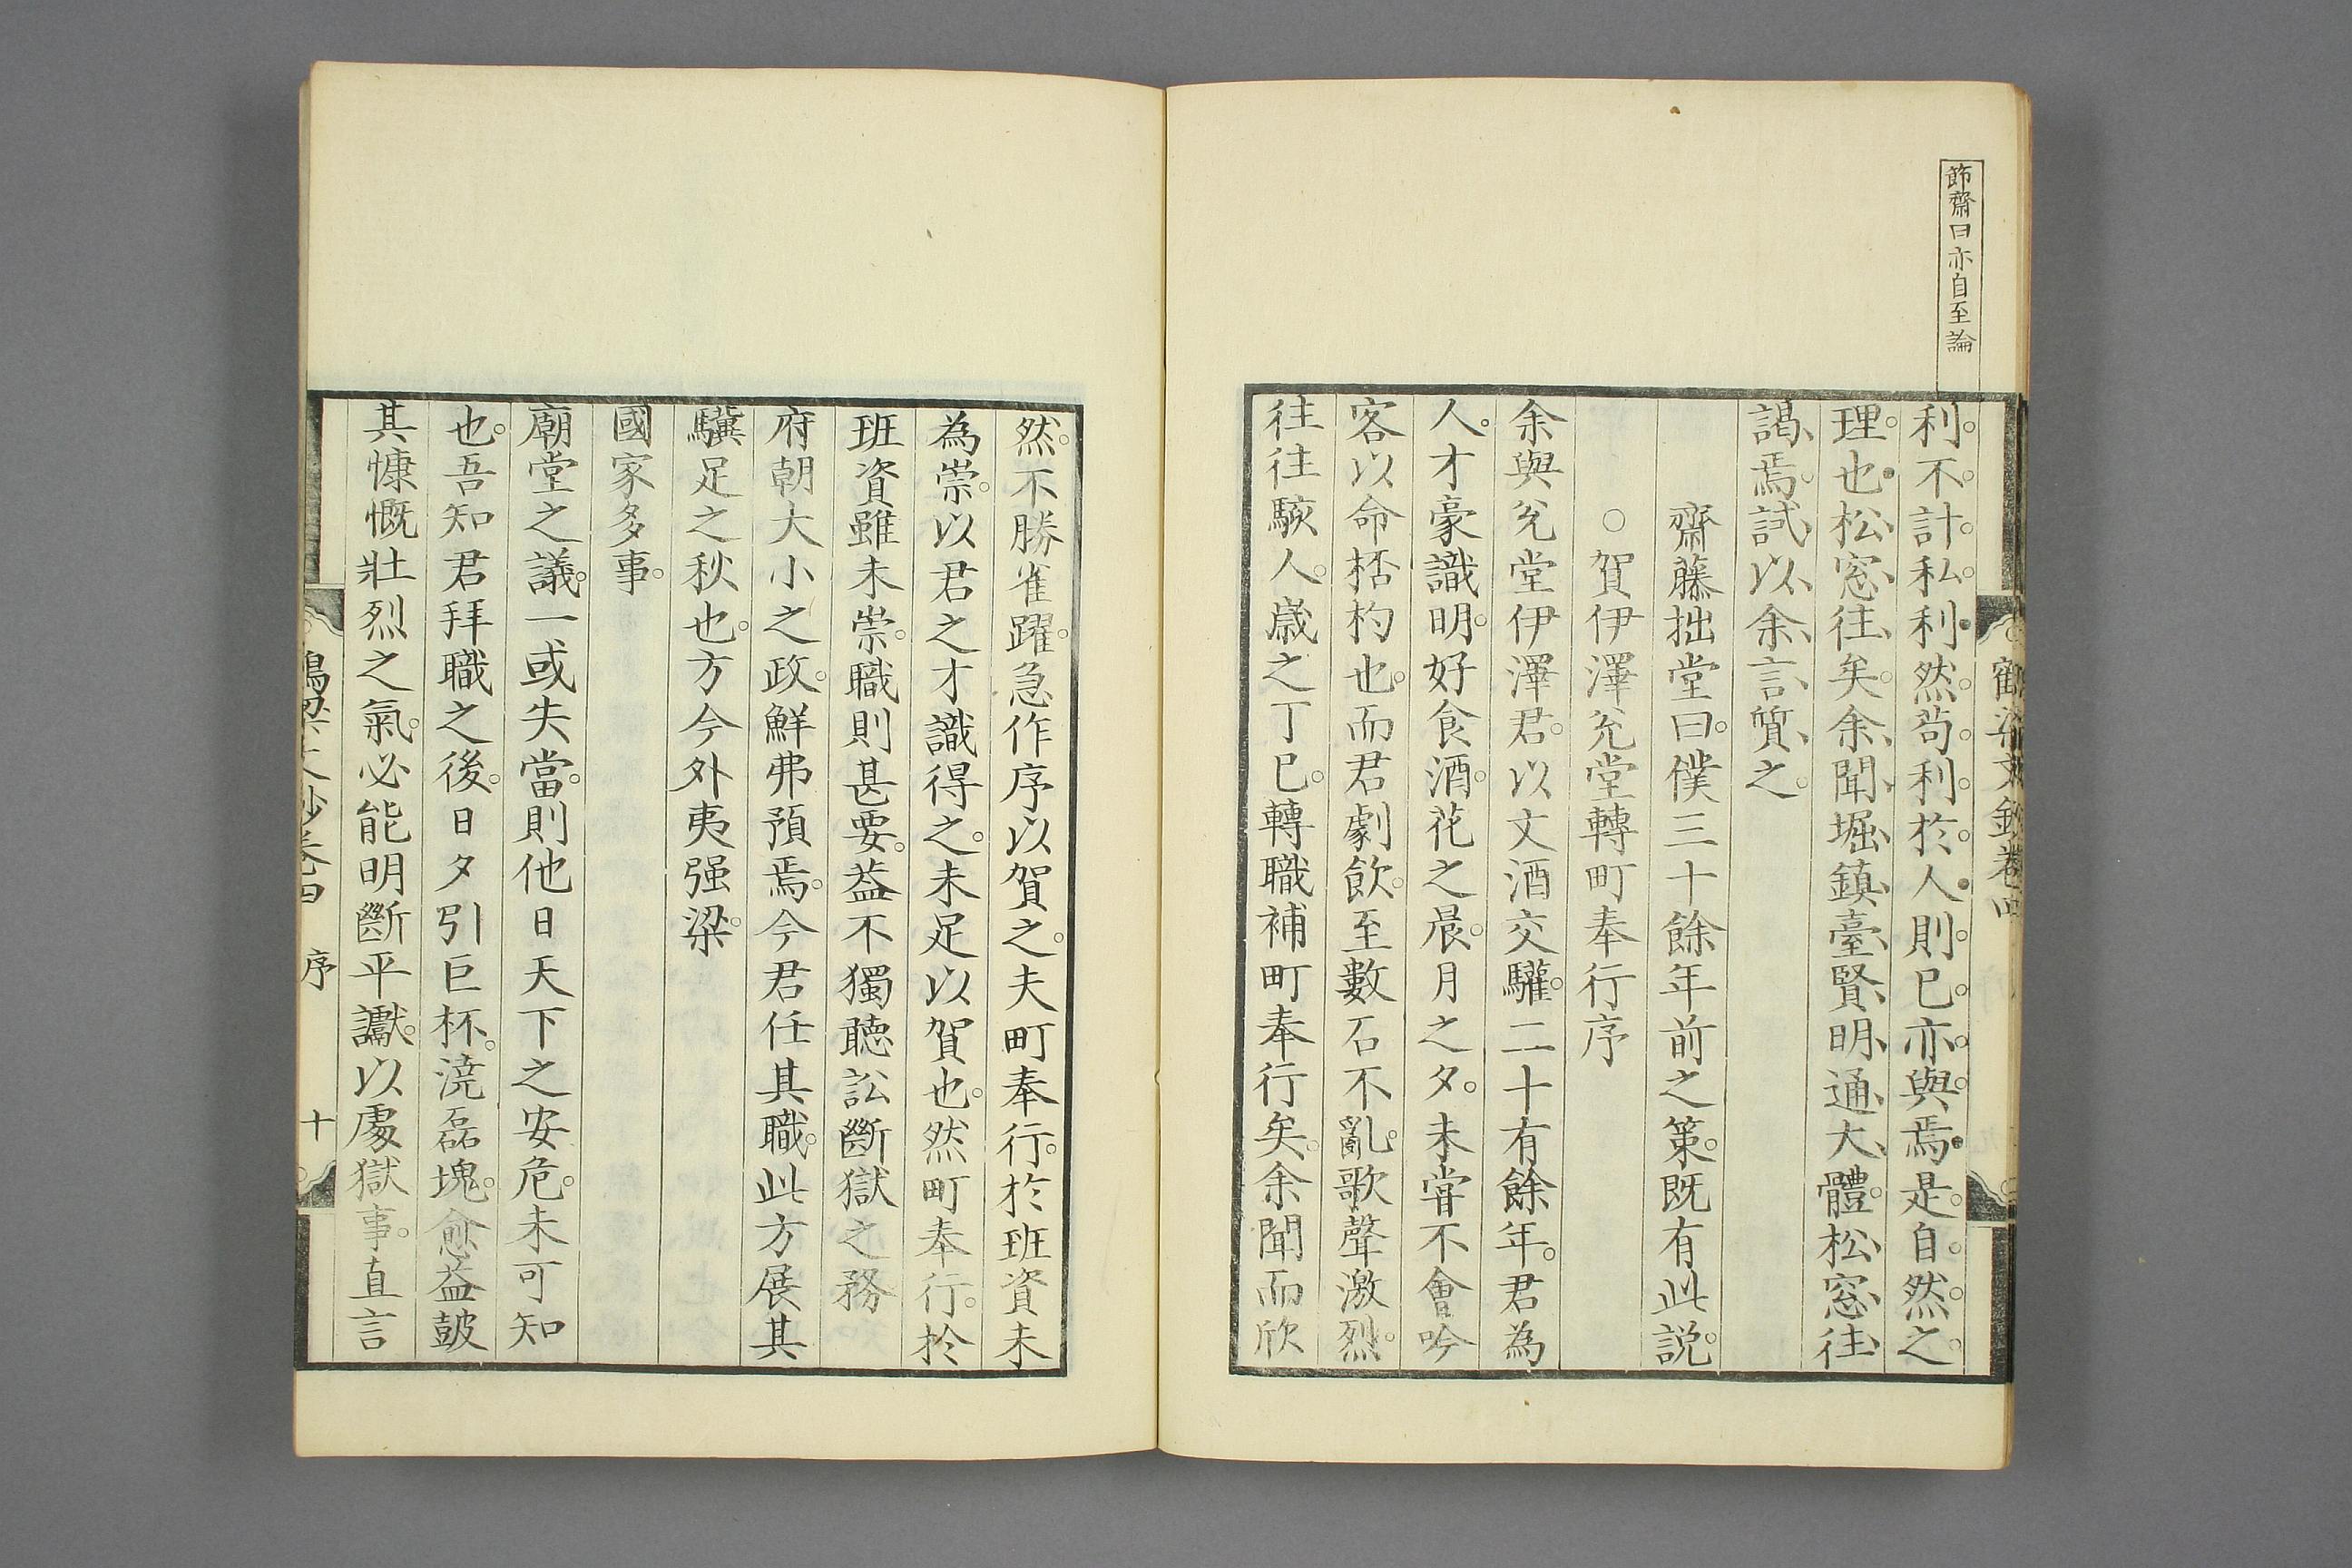 節齋曰亦自至論
利不計私利然苟利於人則已亦與焉是自然之
理也松窓往矣余聞堀鎮臺賢明通大體松窓往
謁焉試以余言質之
齋藤拙堂曰僕三十餘年前之策既有此説
○賀伊澤兊堂轉町奉行序
余與兊堂伊澤君以文酒交驩二十有餘年君為
人才豪識明好食酒花之晨月之夕未嘗不會吟
客以命桮杓也而君劇飲至數石不亂歌聲激烈
往往駭人歳之丁巳轉職補町奉行矣余聞而欣
鶴梁文鈔卷四
然不勝雀躍急作序以賀之夫町奉行於班資未
為崇以君之才識得之未足以賀也然町奉行於
班資雖未崇職則甚要葢不獨聽訟斷獄之務
府朝大小之政鮮弗預焉今君任其職此方展其
驥足之秋也方今外夷强梁
國家多事
廟堂之議一或失當則他日天下之安危未可知
也吾知君拜職之後日夕引巨杯澆磊塊愈益皷
其慷慨壯烈之氣必能明斷平讞以處獄事直言
鶴梁文鈔卷四 序 十